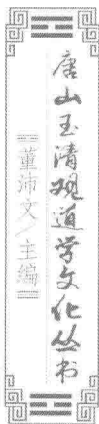 唐山玉清观道学文化丛书
董沛文／主编